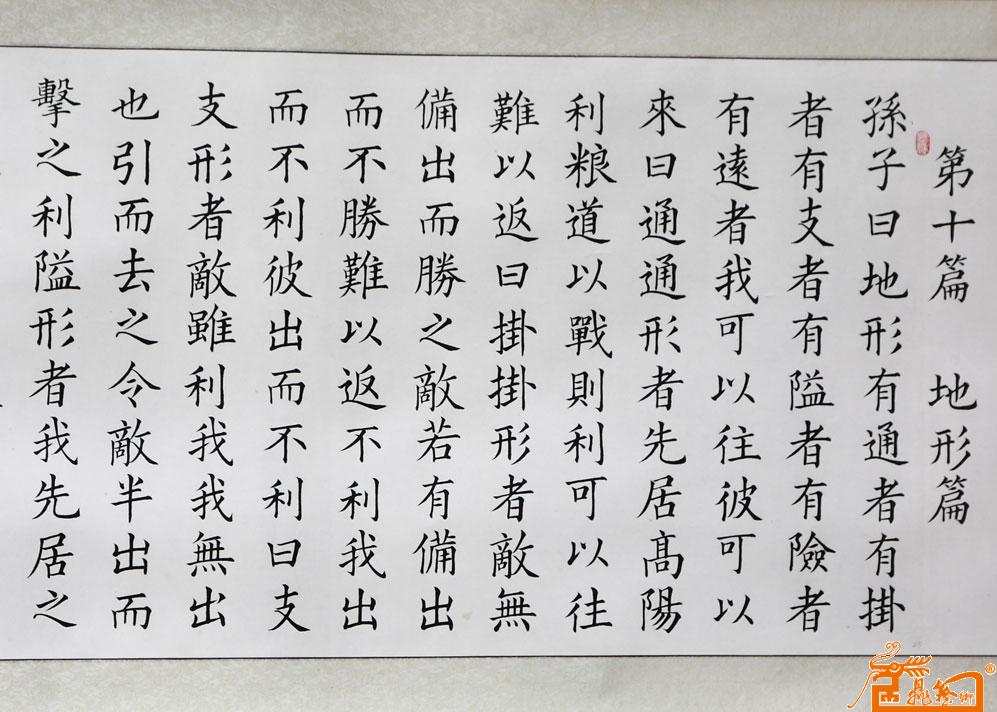 第十篇 地形篇
孫子曰地形有通者有掛
者有支者有隘者有險者
有遠者我可以往彼可以
來曰通通形者先居高陽
利粮道以戰則利可以往
難以返曰掛掛形者敵無
備出而勝之敵若有備出
而不勝難以返不利我出
而不利彼出而不利曰支
支形者敵雖利我我無出
也引而去之令敵半出而
擊之利隘形者我先居之